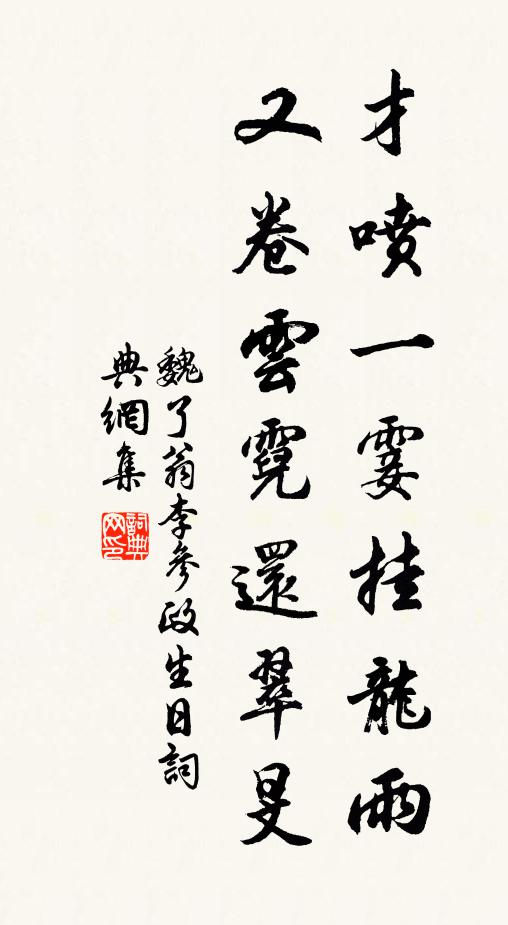 才噴一霎挂龍雨
又卷雲霓還翠旻
魏了翁李參政生日詞
典網集
詞典網印